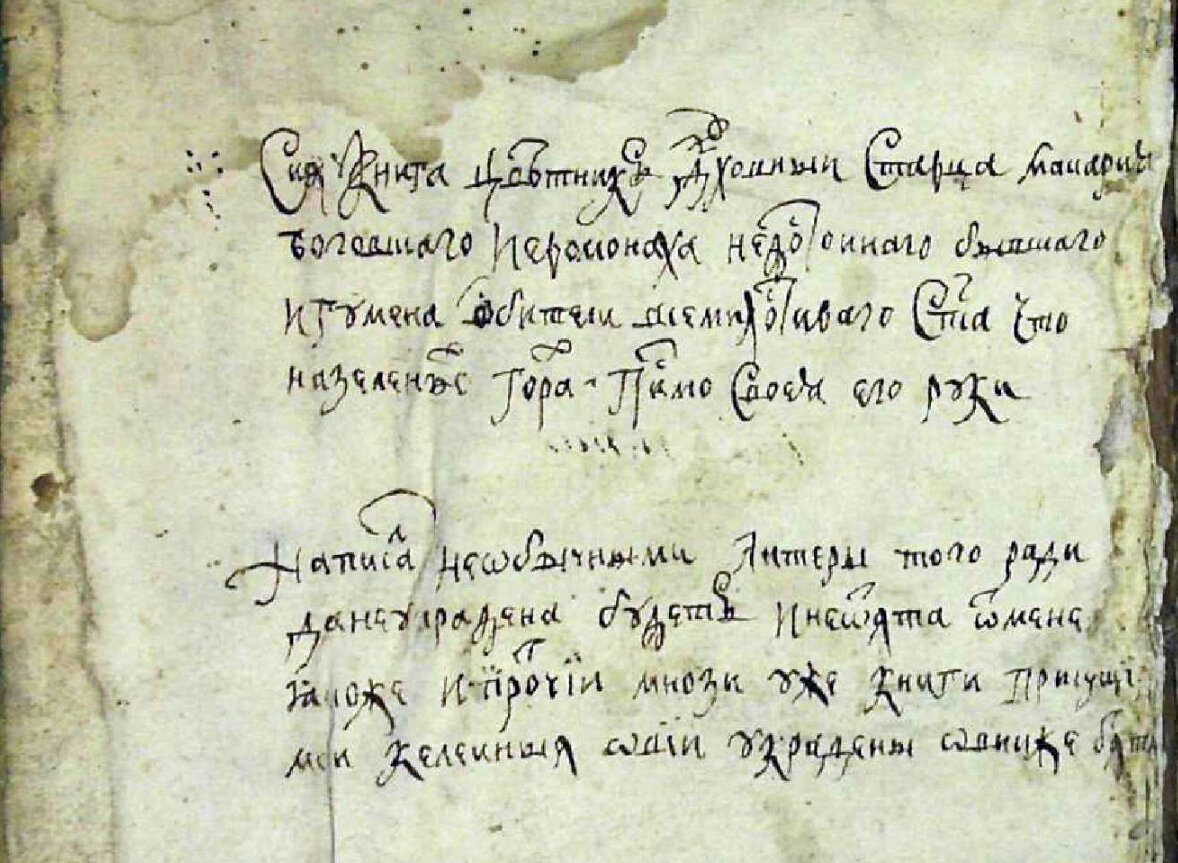 Сия Книга Цвѣтникъ Дховныи Старца макария
богевшаго Иеромонаха недостоинаго бывшаго
игумена обители всемлтиваго Спса что
назеленыс Гора Пимо Своея его руки
Написа необычными литеры того ради
данеукрадена будетъ инеѿята ѿмене
якоже ипрочїи мнози уже книги присущ
ми келеиныя ѡвїи украдены ѡвиже